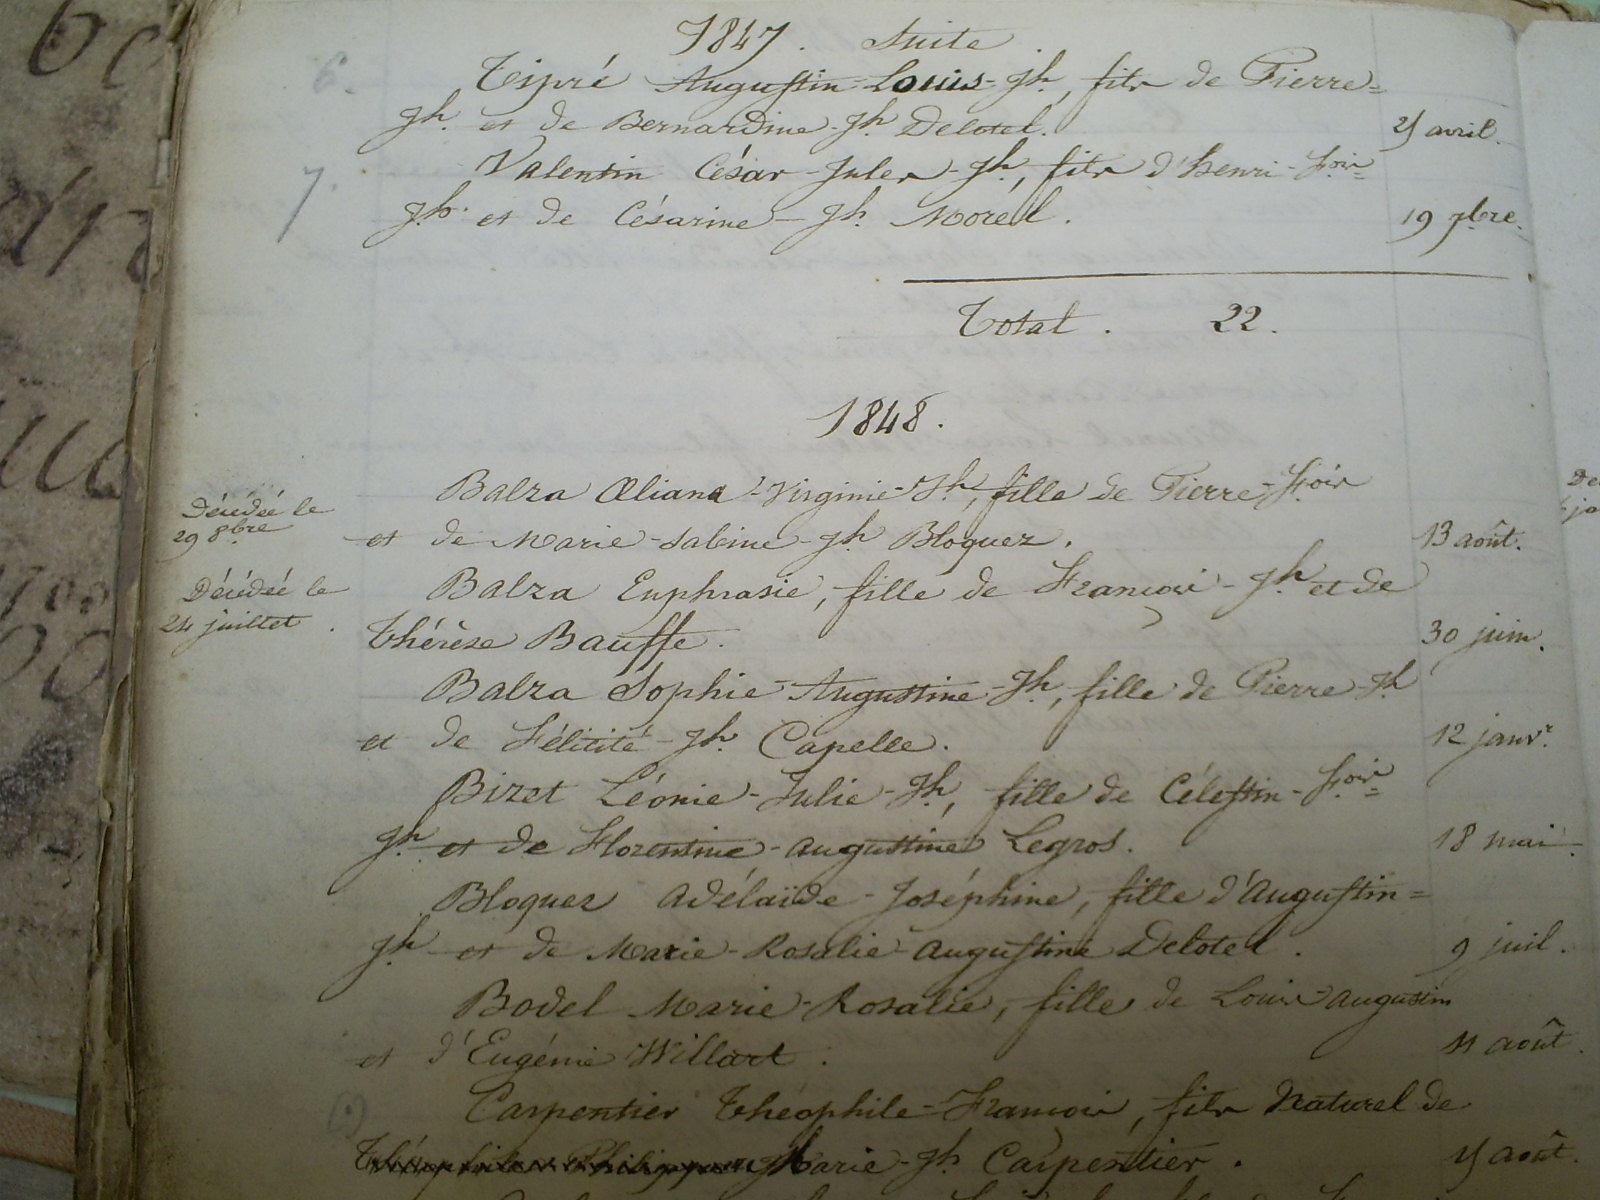 1847. Suite.
6. Tipré Augustin-Louis-Jh, fils de Pierre=
Jh. et de Bernardine-Jh Delotel. 25 avril.
7. Valentin César-Jules-Jh, fils d'Henri-Fcois=
Jh. et de Césarine-Jh. Morell. 19 9bre.
Total. 22.
1848.
Balza Æliana-Virginie-Jh, fille de Pierre-Fcois
Décédée le
29 8bre
et de Marie-Sabine-Jh Bloquez. 13 août.
Balza Euphrasie, fille de François-Jh et de
Décédée le
24 juillet.
Thérèse Bauffe. 30 juin.
Balza Sophie-Augustine-Jh, fille de Pierre-Jh
et de Félicité-Jh. Capelle. 12 janvr.
Bizet Léonie-Julie-Jh, fille de Célestin-Fcois=
Jh. et de Florentine-Augustine Legros. 18 mai.
Bloquez Adélaïde-Joséphine, fille d'Augustin=
Jh et de Marie-Rosalie-Augustine Delotel. 9 juil.
Bodel Marie-Rosalie, fille de Louis-Augustin
et d'Eugénie Willart. 11 août.
Carpentier Théophile-François, fils Naturel de
Marie-Jh Carpentier. 15 août.